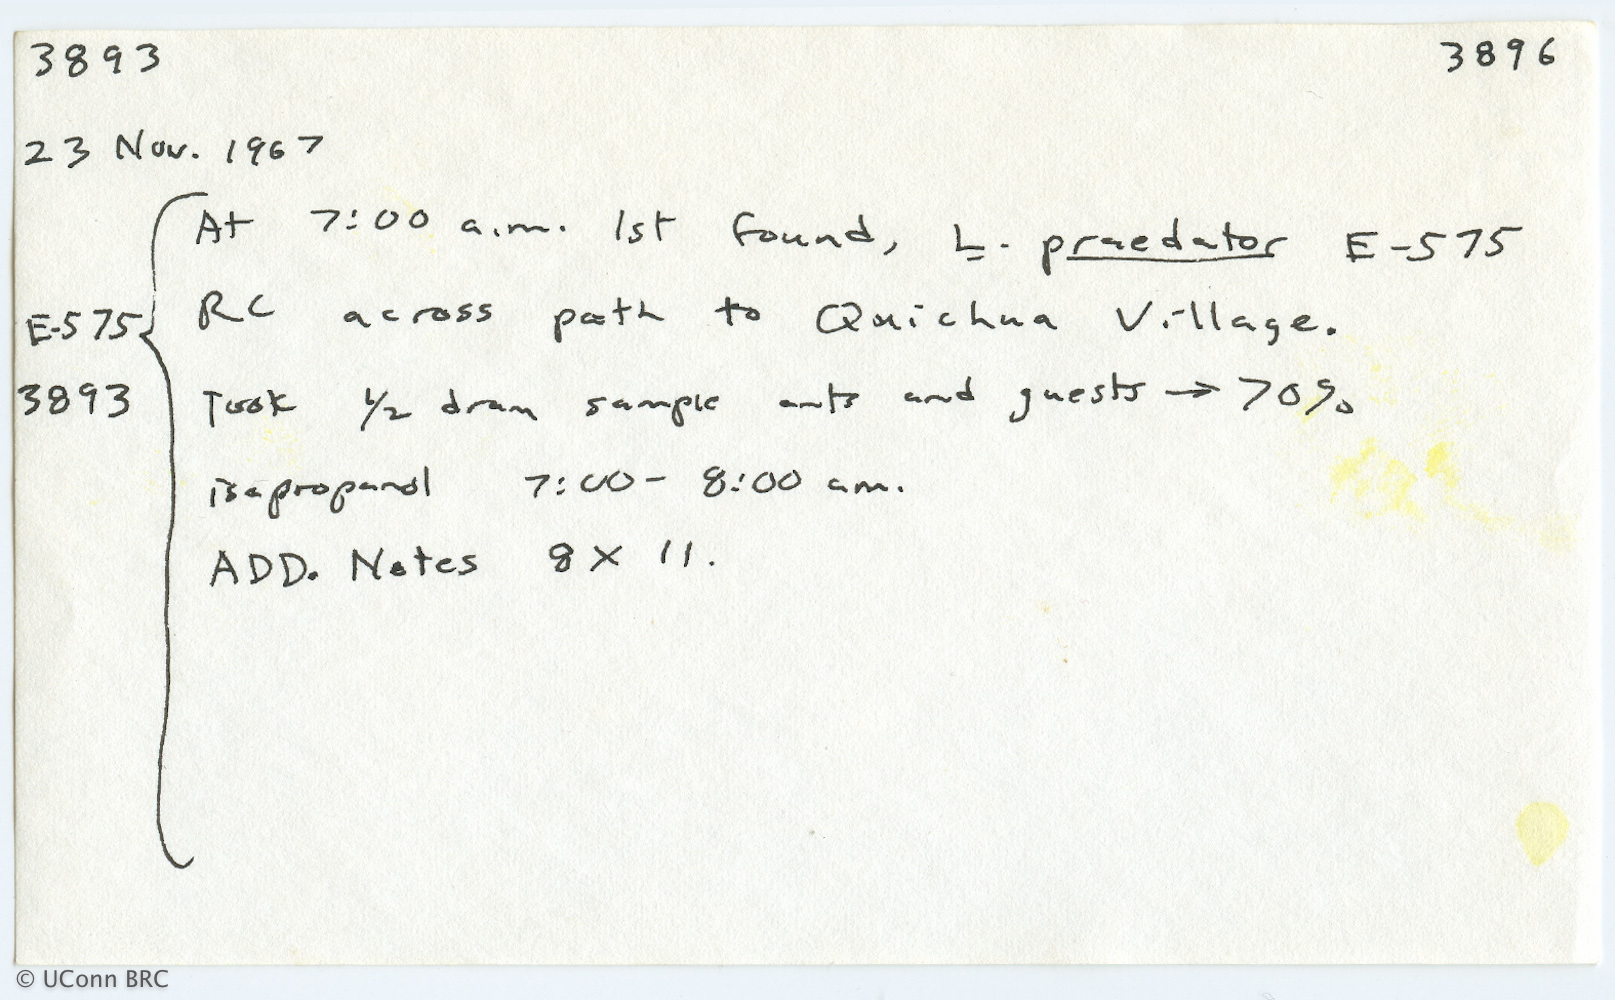 3893 3896
23 Nov. 1967
At 7:00 a.m. 1st found, L. praedator E-575
E-575 RC across path to Quichua Village.
3893 Took 1/2 dram sample ants and guests → 70%
isopropanol 7:00 - 8:00 am.
ADD. Notes 8 X 11.
© UConn BRC